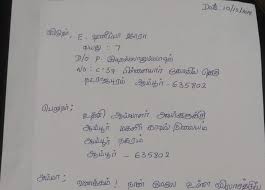 Date: 10/12/2018
E. ஹனீபா ஜாரா
வயது : 7
D/O P. இஹ்ஸானுல்லாஹ்
No: C:37 பிள்ளையார் கோவில் தெரு
நடராஜபுரம் ஆம்பூர் - 635802
பெறுநர்:
உதவி ஆய்வாளர் அவர்களுக்கு
ஆம்பூர் மகளிர் காவல் நிலையம்
ஆம்பூர் நகரம்
ஆம்பூர் - 635802
அம்மா :
வணக்கம் ! நான்